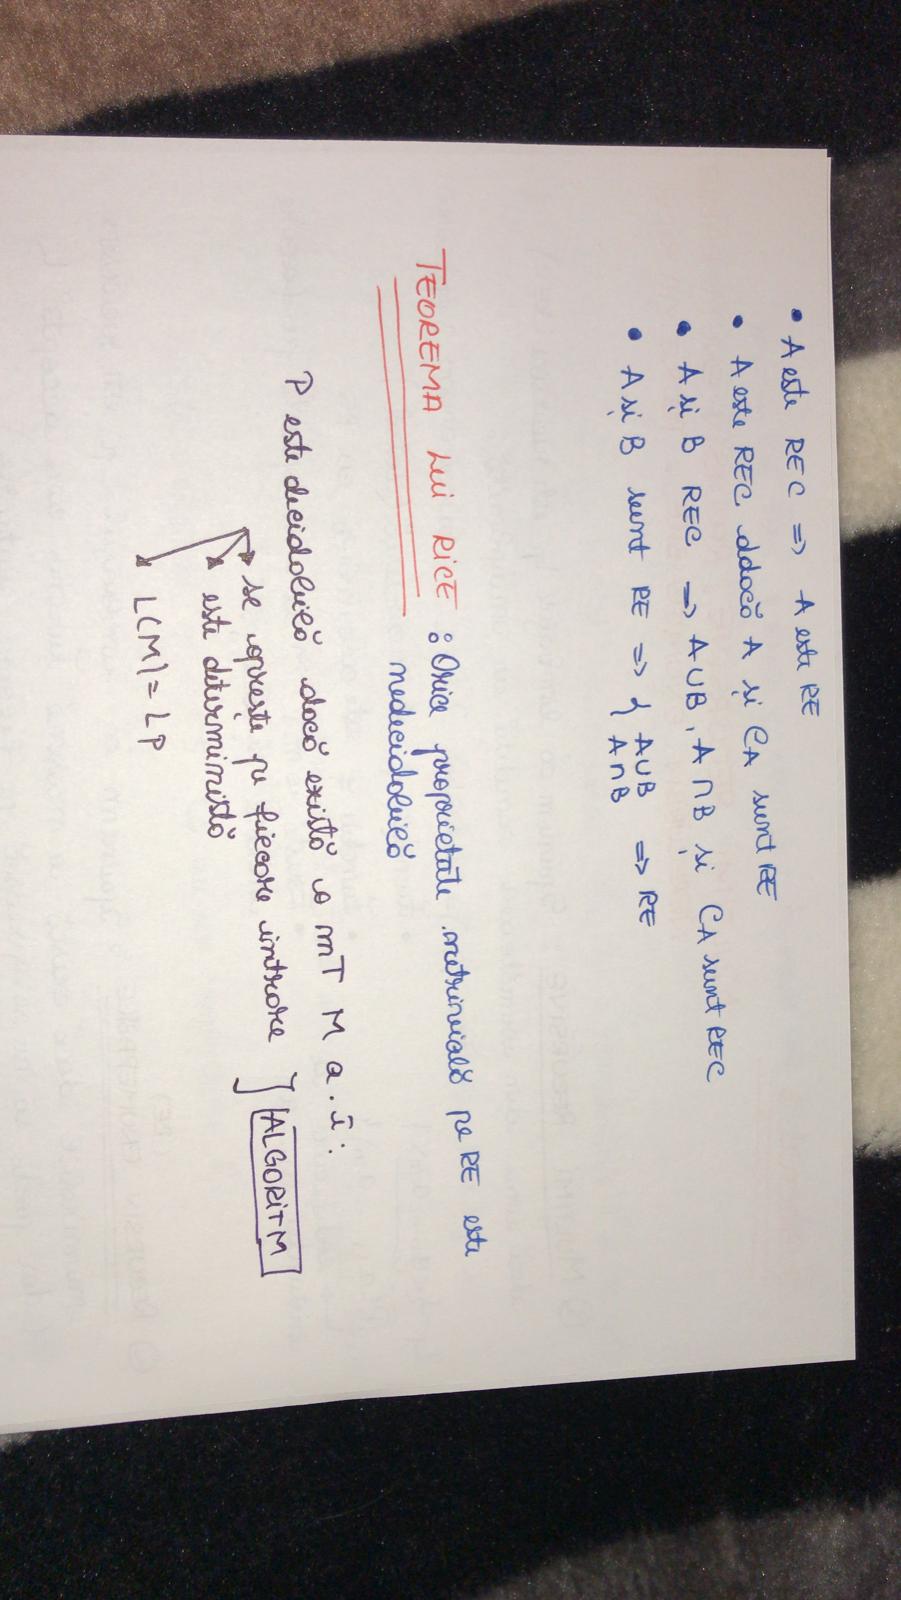 • A este REC => A este RE
• A este REC ddacă A și CA sunt RE
• A și B REC => A∪B, A∩B și CA sunt REC
• A și B sunt RE => { A∪B => RE
A∩B
TEOREMA LUI RICE : Orice proprietate netrivială pe RE este
nedecidabilă
P este decidabilă dacă există o mT M a.î:
se oprește pe fiecare intrare } ALGORITM
este deterministă
L(M) = LP